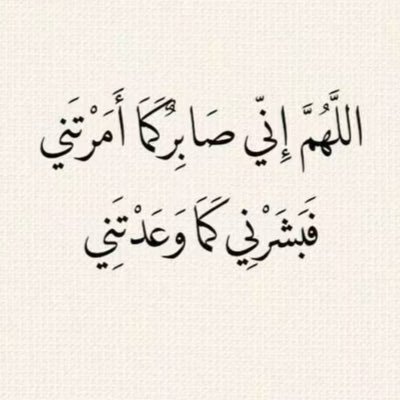 اللَّهُمَّ إِنِّي صَابِرٌ كَمَا أَمَرْتَني
فَبَشَرْنِي كَمَا وَعَدْتَنِي